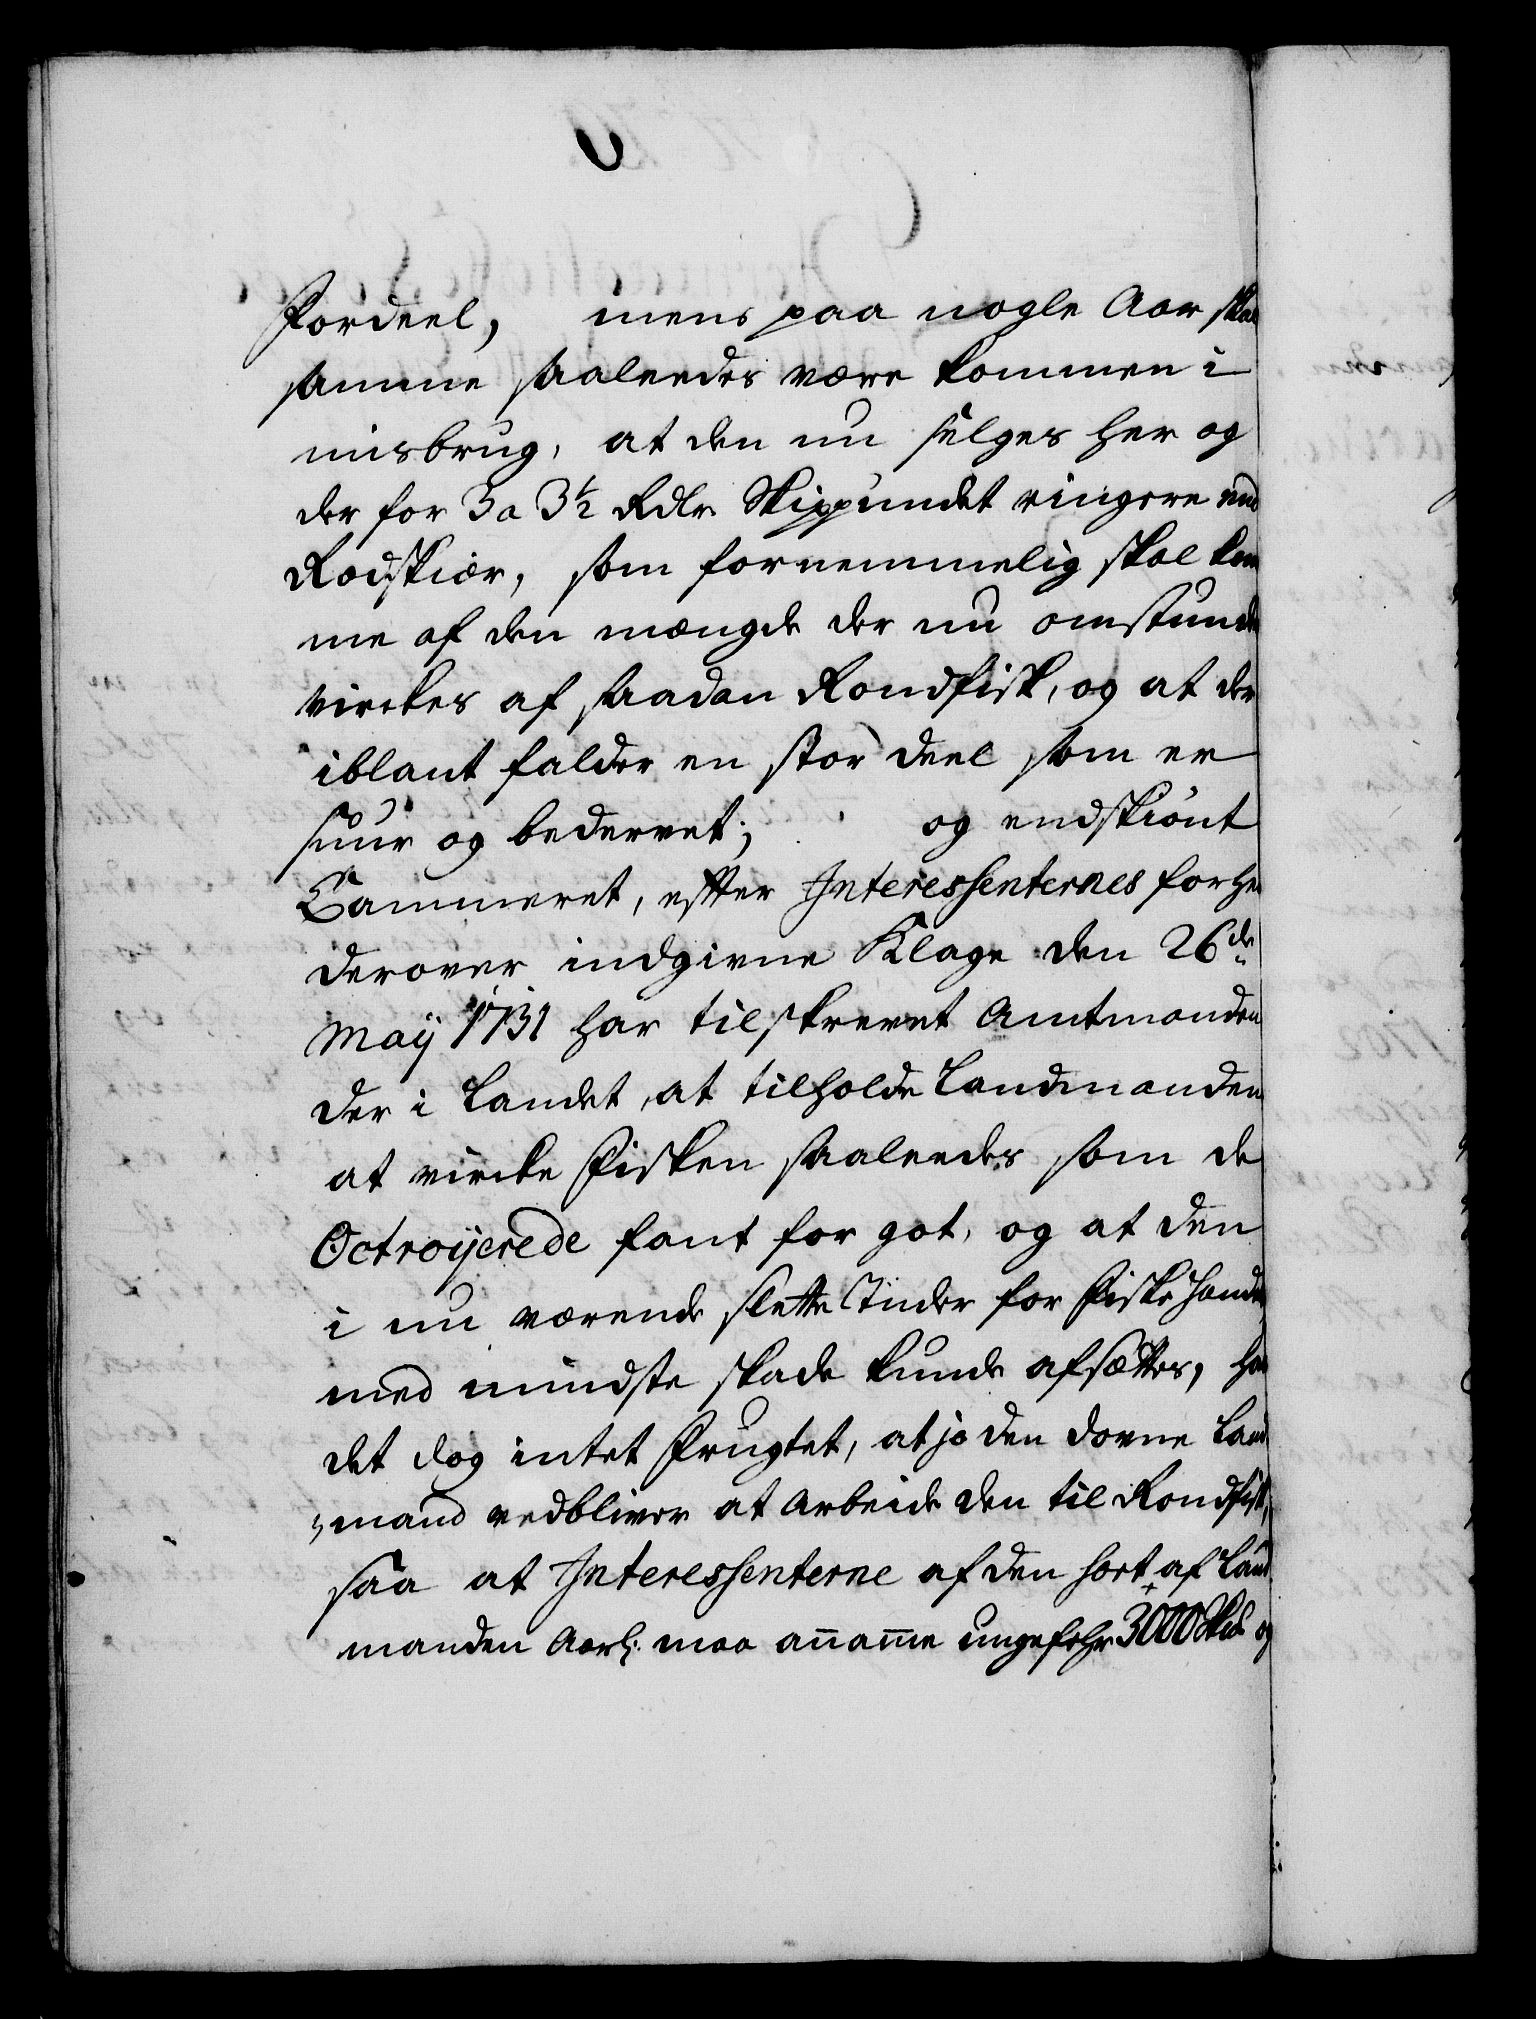 Fordeel, mens paa nogle Aar skal
samme saaleedes være kommen i
misbrug, at den nu sælges her og
der for 3 a 3½ Rdlr Skippundet ringere end
Rodskiær, som fornemmelig skal kom
me af den mængde der nu omstunde
virckes af saadan Rondfisk, og at der
iblant falder en stor deel som er
suur og bedervet; og endskiønt
Cammeret, efter Interessenternes forhen
derover indgivne Klage den 26de
Maij 1731 har tilskrevet Amtmanden
der i Landet, at tilholde Landmanden
at vircke Fisken saaleedes som de
Octroijerede fant for got, og at den
i nu værende slette Tiider for Fiske Handel
med mindste skade kunde afsættes, har
det dog intet Frugtet, at jo den dovne Land
mand vedbliver at Arbeide den til Rondfisk,
saa at Interessenterne af den sort af Land
manden Aarl: maa an̄am̄e ungefehr 3000 Skd og